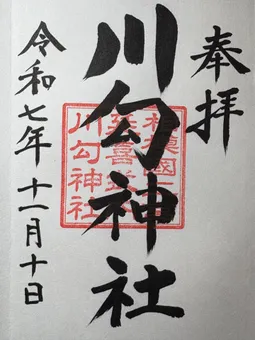 奉拝
川勾神社
令和七年十一月十日
相模國二
延喜式
川勾神社